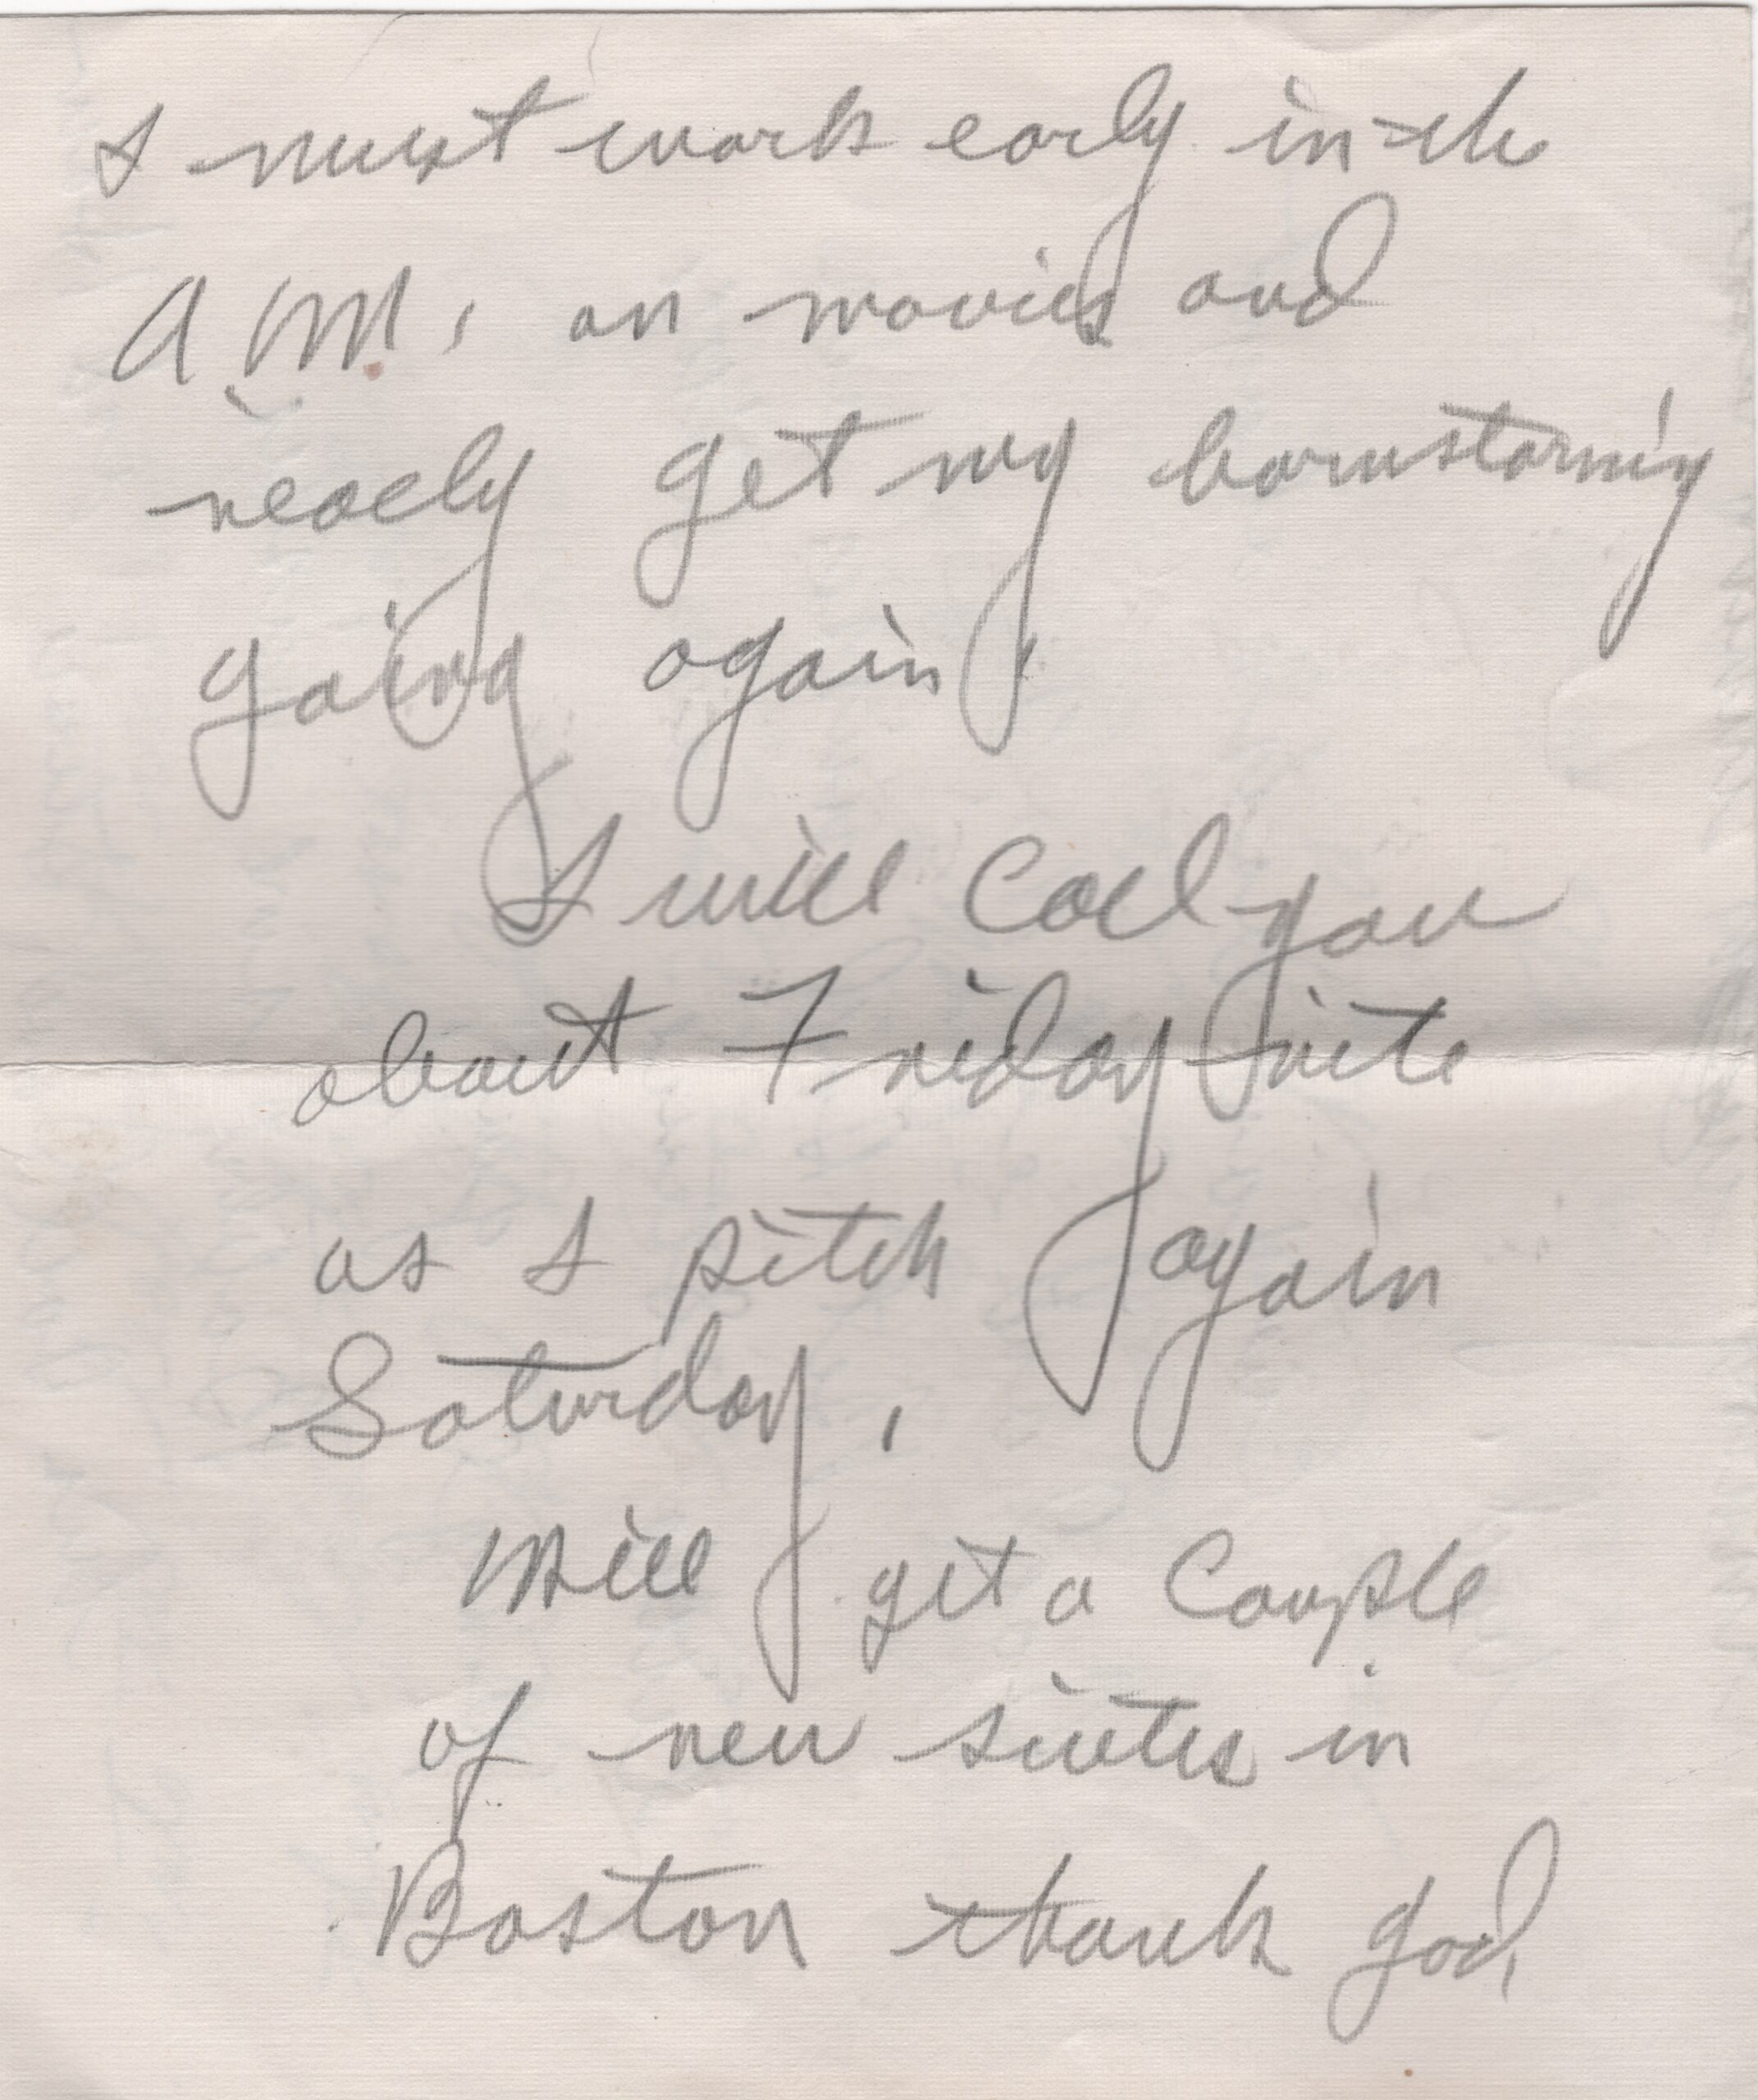 I must work early in the
A.M. on movies and
really get my barnstorming
going again.
I will Call you
about Friday nite
as I pitch again
Saturday.
Will get a Couple
of new suites in
Boston thank god.